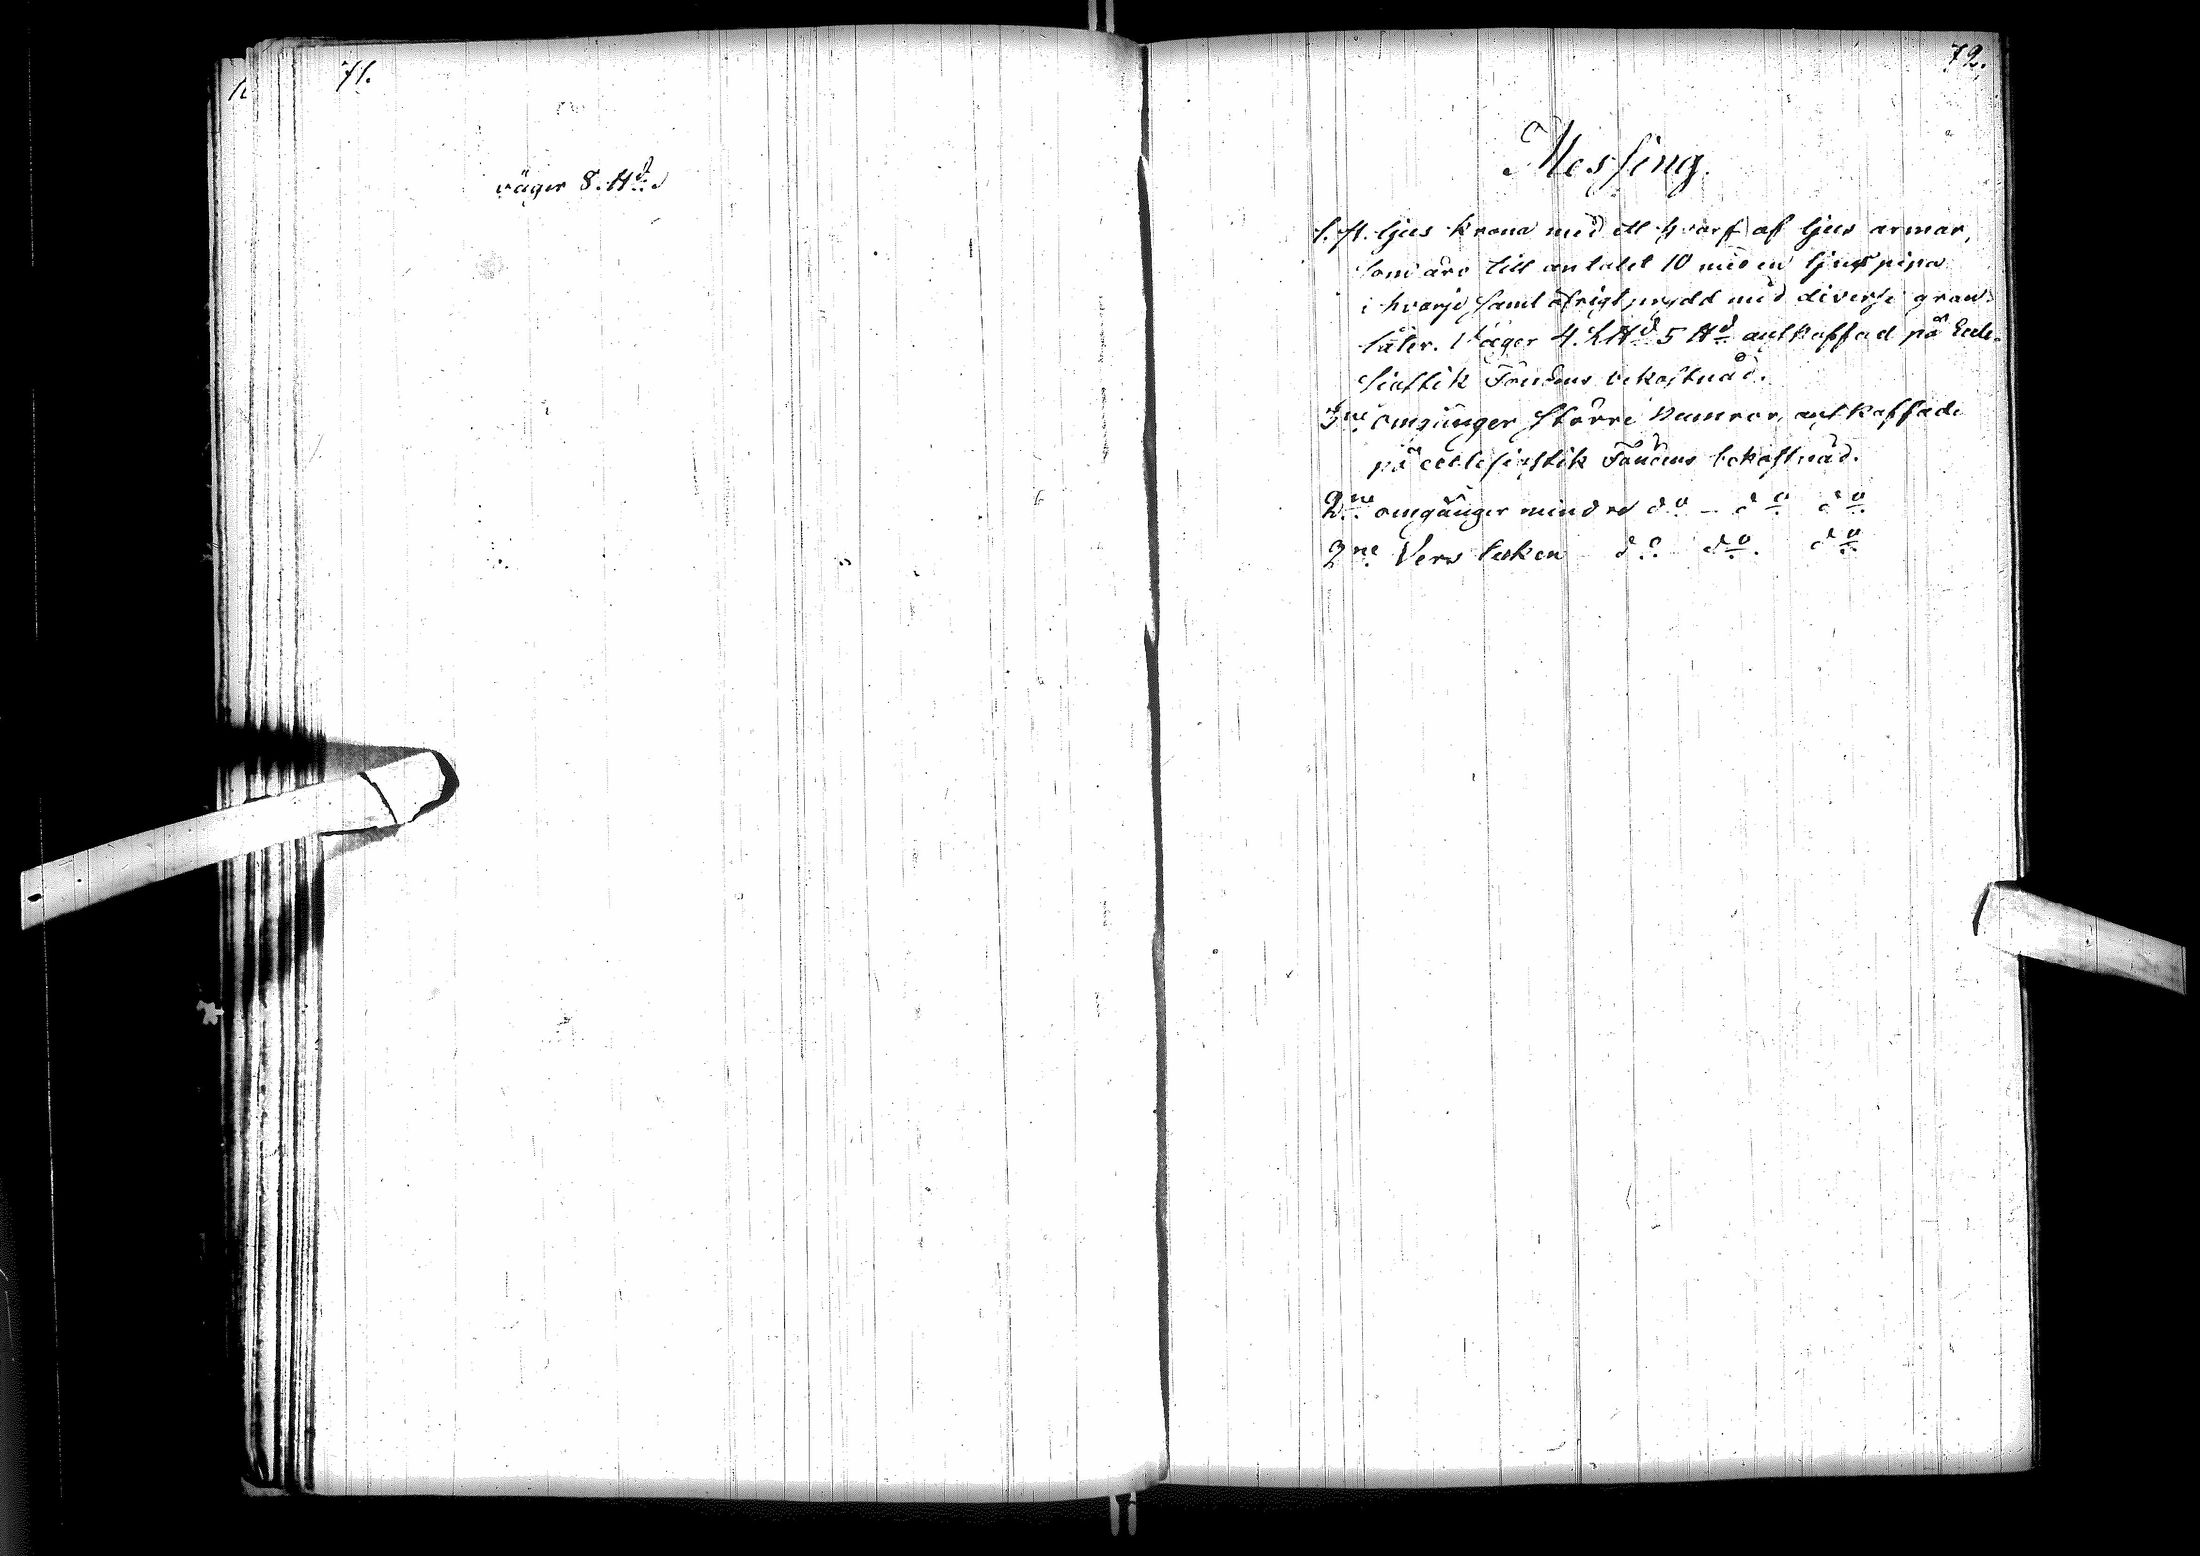 71.
väger 8. ℔d.
72.
Messing.
1. st. ljus krona med ett hvarf af ljus armar,
som äro till antalet 10 med en ljuspipa
i hvarje, samt öfrigt prydd med diverse gran-
låter. Väger 4. L℔d 5 ℔d anskaffad på Eccle-
siastik Fondens bekostnad.
3ne omgånger större Numror, anskaffade
på ecclesiastik Fondens bekostnad.
2ne omgånger mindre do - do do
2ne Vers tecken do do. do